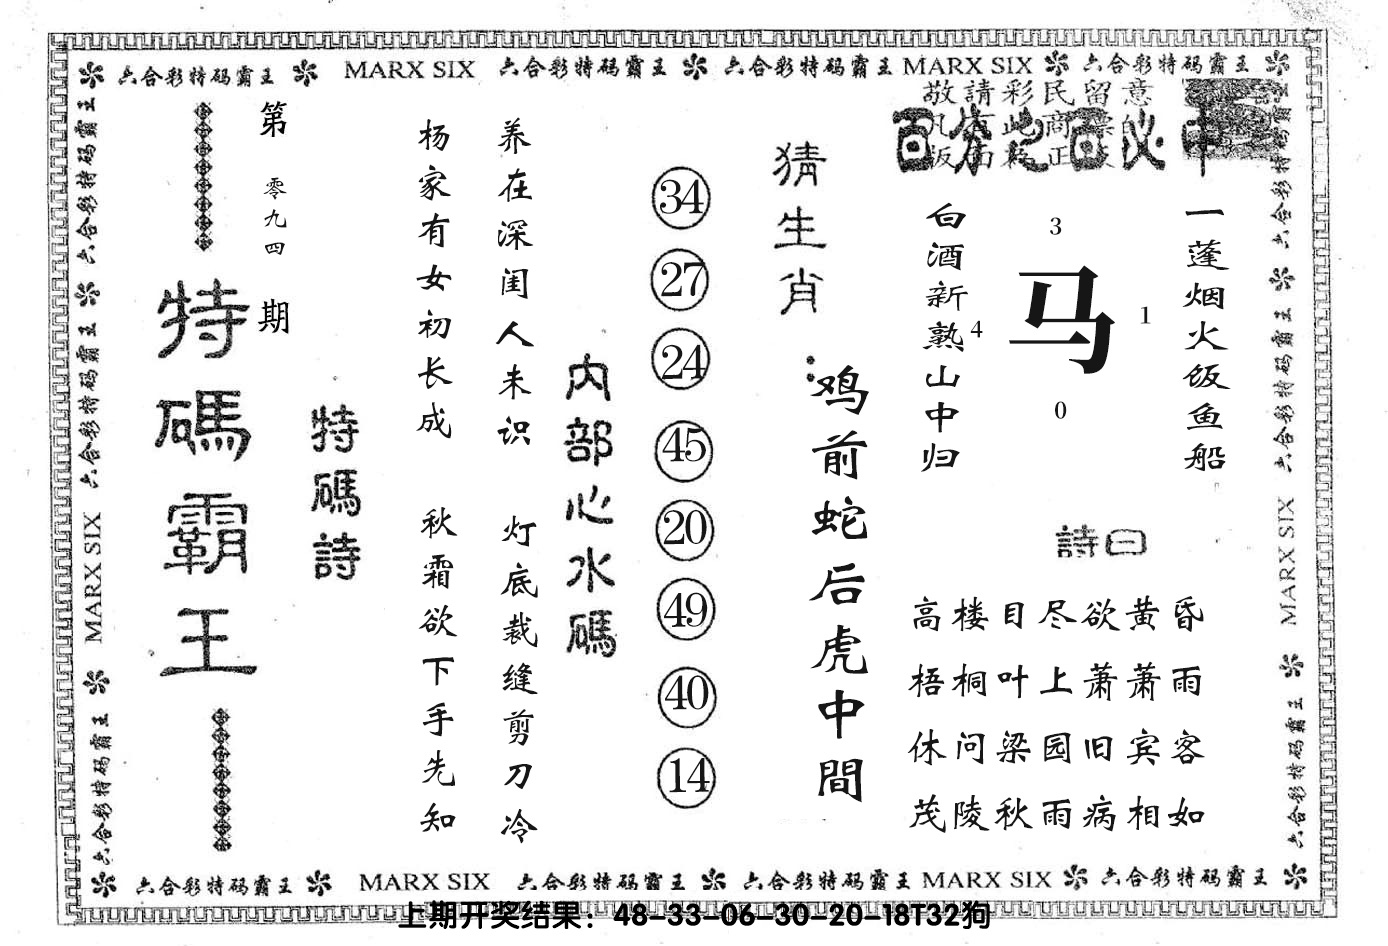 六合彩特码霸王 MARX SIX 六合彩特码霸王 六合彩特码霸王 MARX SIX 六合彩特码霸王
六合彩特码霸王 六合彩特码霸王 MARX SIX 六合彩特码霸王
第零九四期
特碼霸王
特碼詩
杨家有女初长成
养在深闺人未识
秋霜欲下手先知
灯底裁缝剪刀冷
内部心水碼
34
27
24
45
20
49
40
14
猜生肖：
鸡前蛇后虎中間
敬請彩民留意
百分之百必中
白酒新熟山中归
3
马
4
1
0
一蓬烟火饭鱼船
詩曰
高楼目尽欲黄昏
梧桐叶上萧萧雨
休问梁园旧宾客
茂陵秋雨病相如
六合彩特码霸王 六合彩特码霸王 MARX SIX 六合彩特码霸王
六合彩特码霸王 MARX SIX 六合彩特码霸王 六合彩特码霸王 MARX SIX 六合彩特码霸王
上期开奖结果：48-33-06-30-20-18T32狗